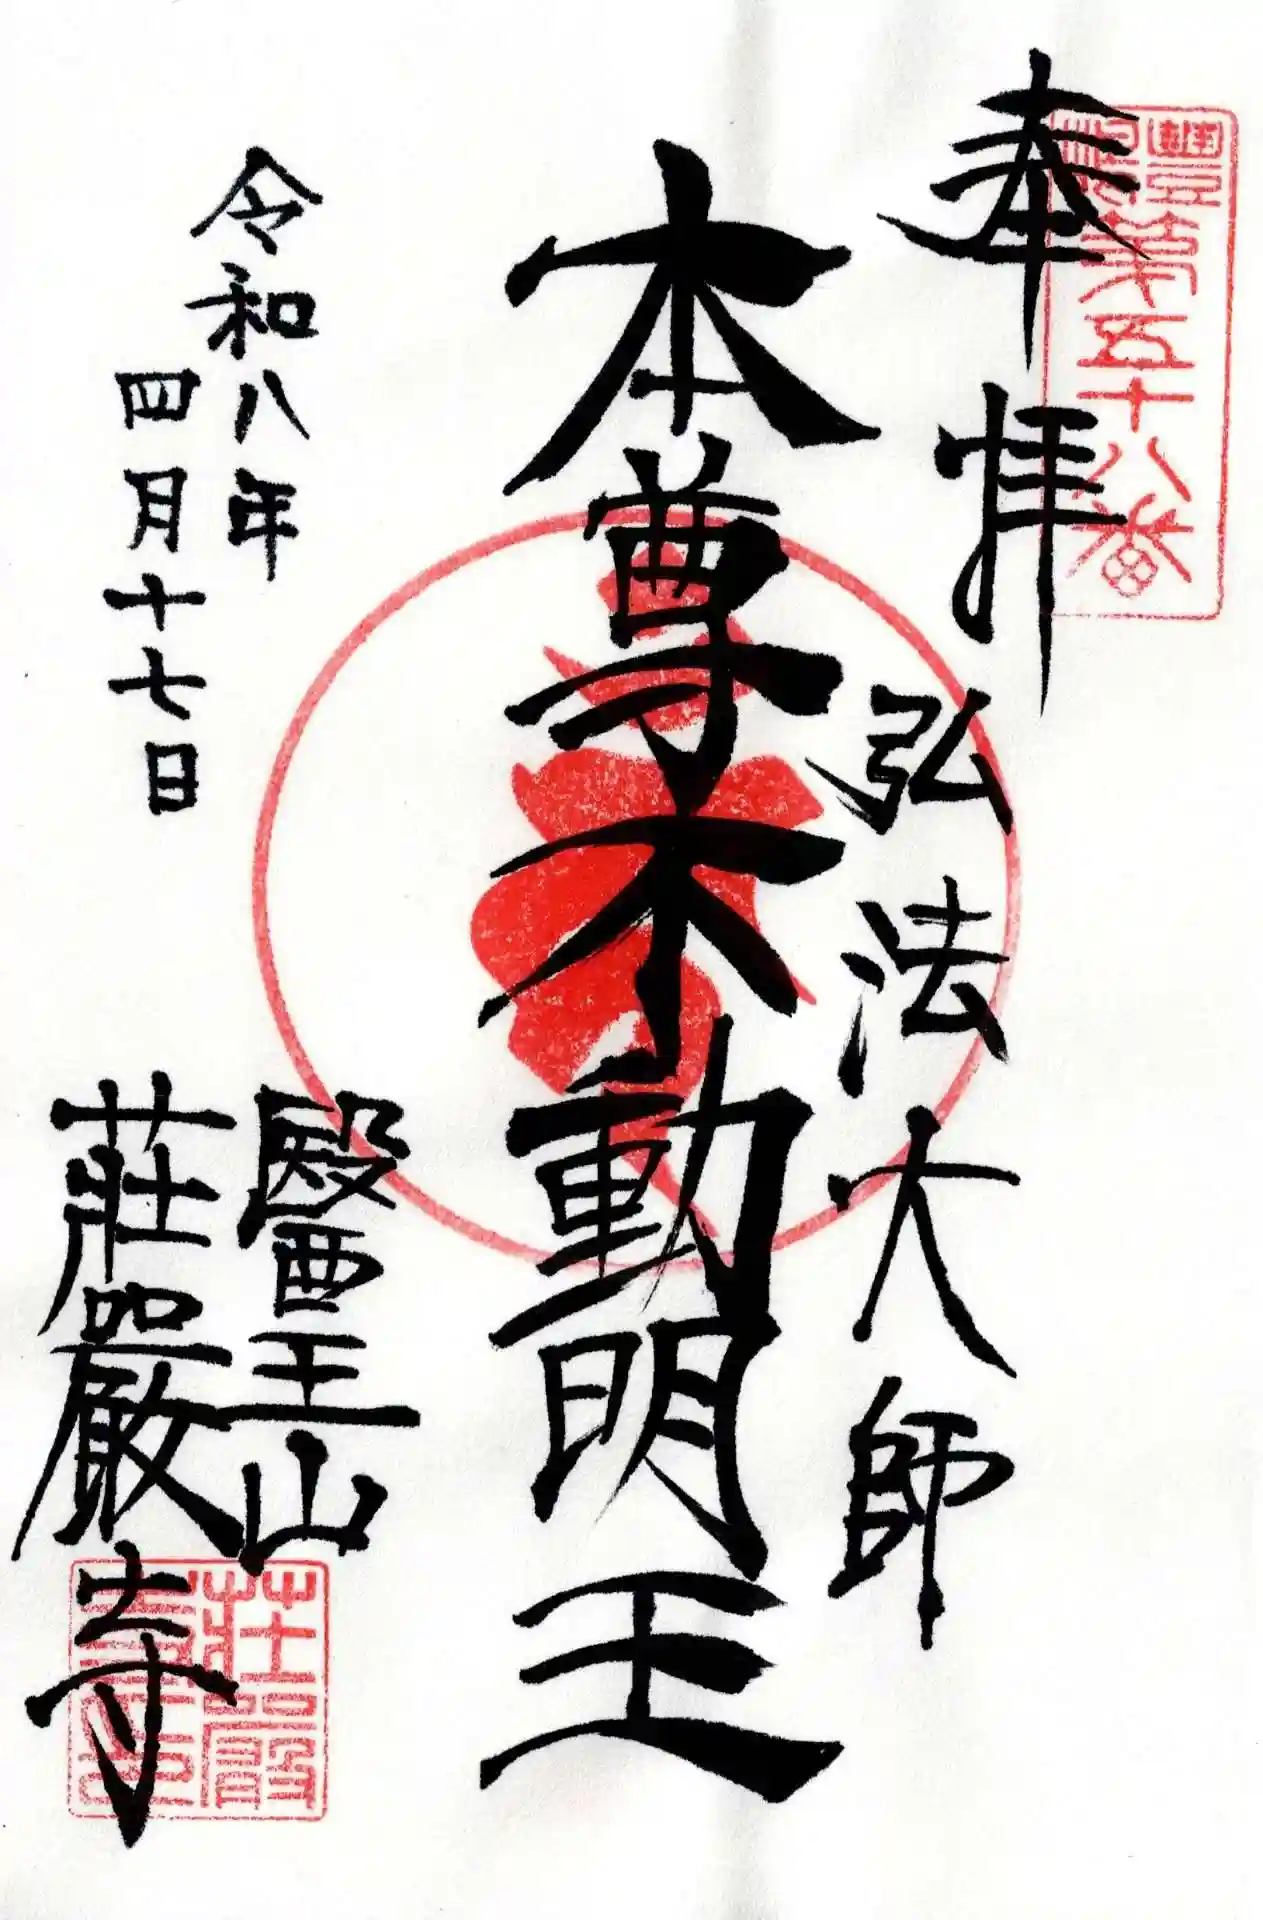 奉拝
第五十八番
弘法大師
本尊不動明王
令和八年
四月十七日
醫王山
莊嚴寺